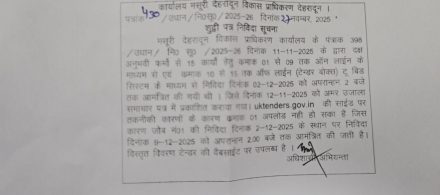 कार्यालय मसूरी देहरादून विकास प्राधिकरण देहरादून ।
पत्रांक 430 /उद्यान/नि0सू0/2025-26 दिनांक 27 नवम्बर, 2025
शुद्धी पत्र निविदा सूचना
मसूरी देहरादून विकास प्राधिकरण कार्यालय के पत्रांक 398
/उद्यान/ नि0 सू0 /2025-26 दिनांक 11-11-2025 के द्वारा दक्ष
अनुभवी फर्मो से 15 कार्यों हेतु क्रमांक 01 से 09 तक ऑन लाईन के
माध्यम से एवं क्रमांक 10 से 15 तक ऑफ लाईन (टेन्डर बॉक्स) टू बिड
सिस्टम के माध्यम से निविदा दिनांक 02-12-2025 को अपरान्हन 2 बजे
तक आमंत्रित की गयी थी । जिसे दिनांक 12-11-2025 को अमर उजाला
समाचार पत्र में प्रकाशित कराया गया। uktenders.gov.in की साईड पर
तकनीकी कारणों के कारण क्रमांक 01 अपलोड नही हो सका है जिस
कारण जॉब नं01 की निविदा दिनांक 2-12-2025 के स्थान पर निविदा
दिनांक 9-12-2025 को अपरान्हन 2.00 बजे तक आमंत्रित की जाती है।
विस्तृत विवरण टेन्डर की वैबसाईट पर उपलब्ध है ।
अधिशासी अभियन्ता